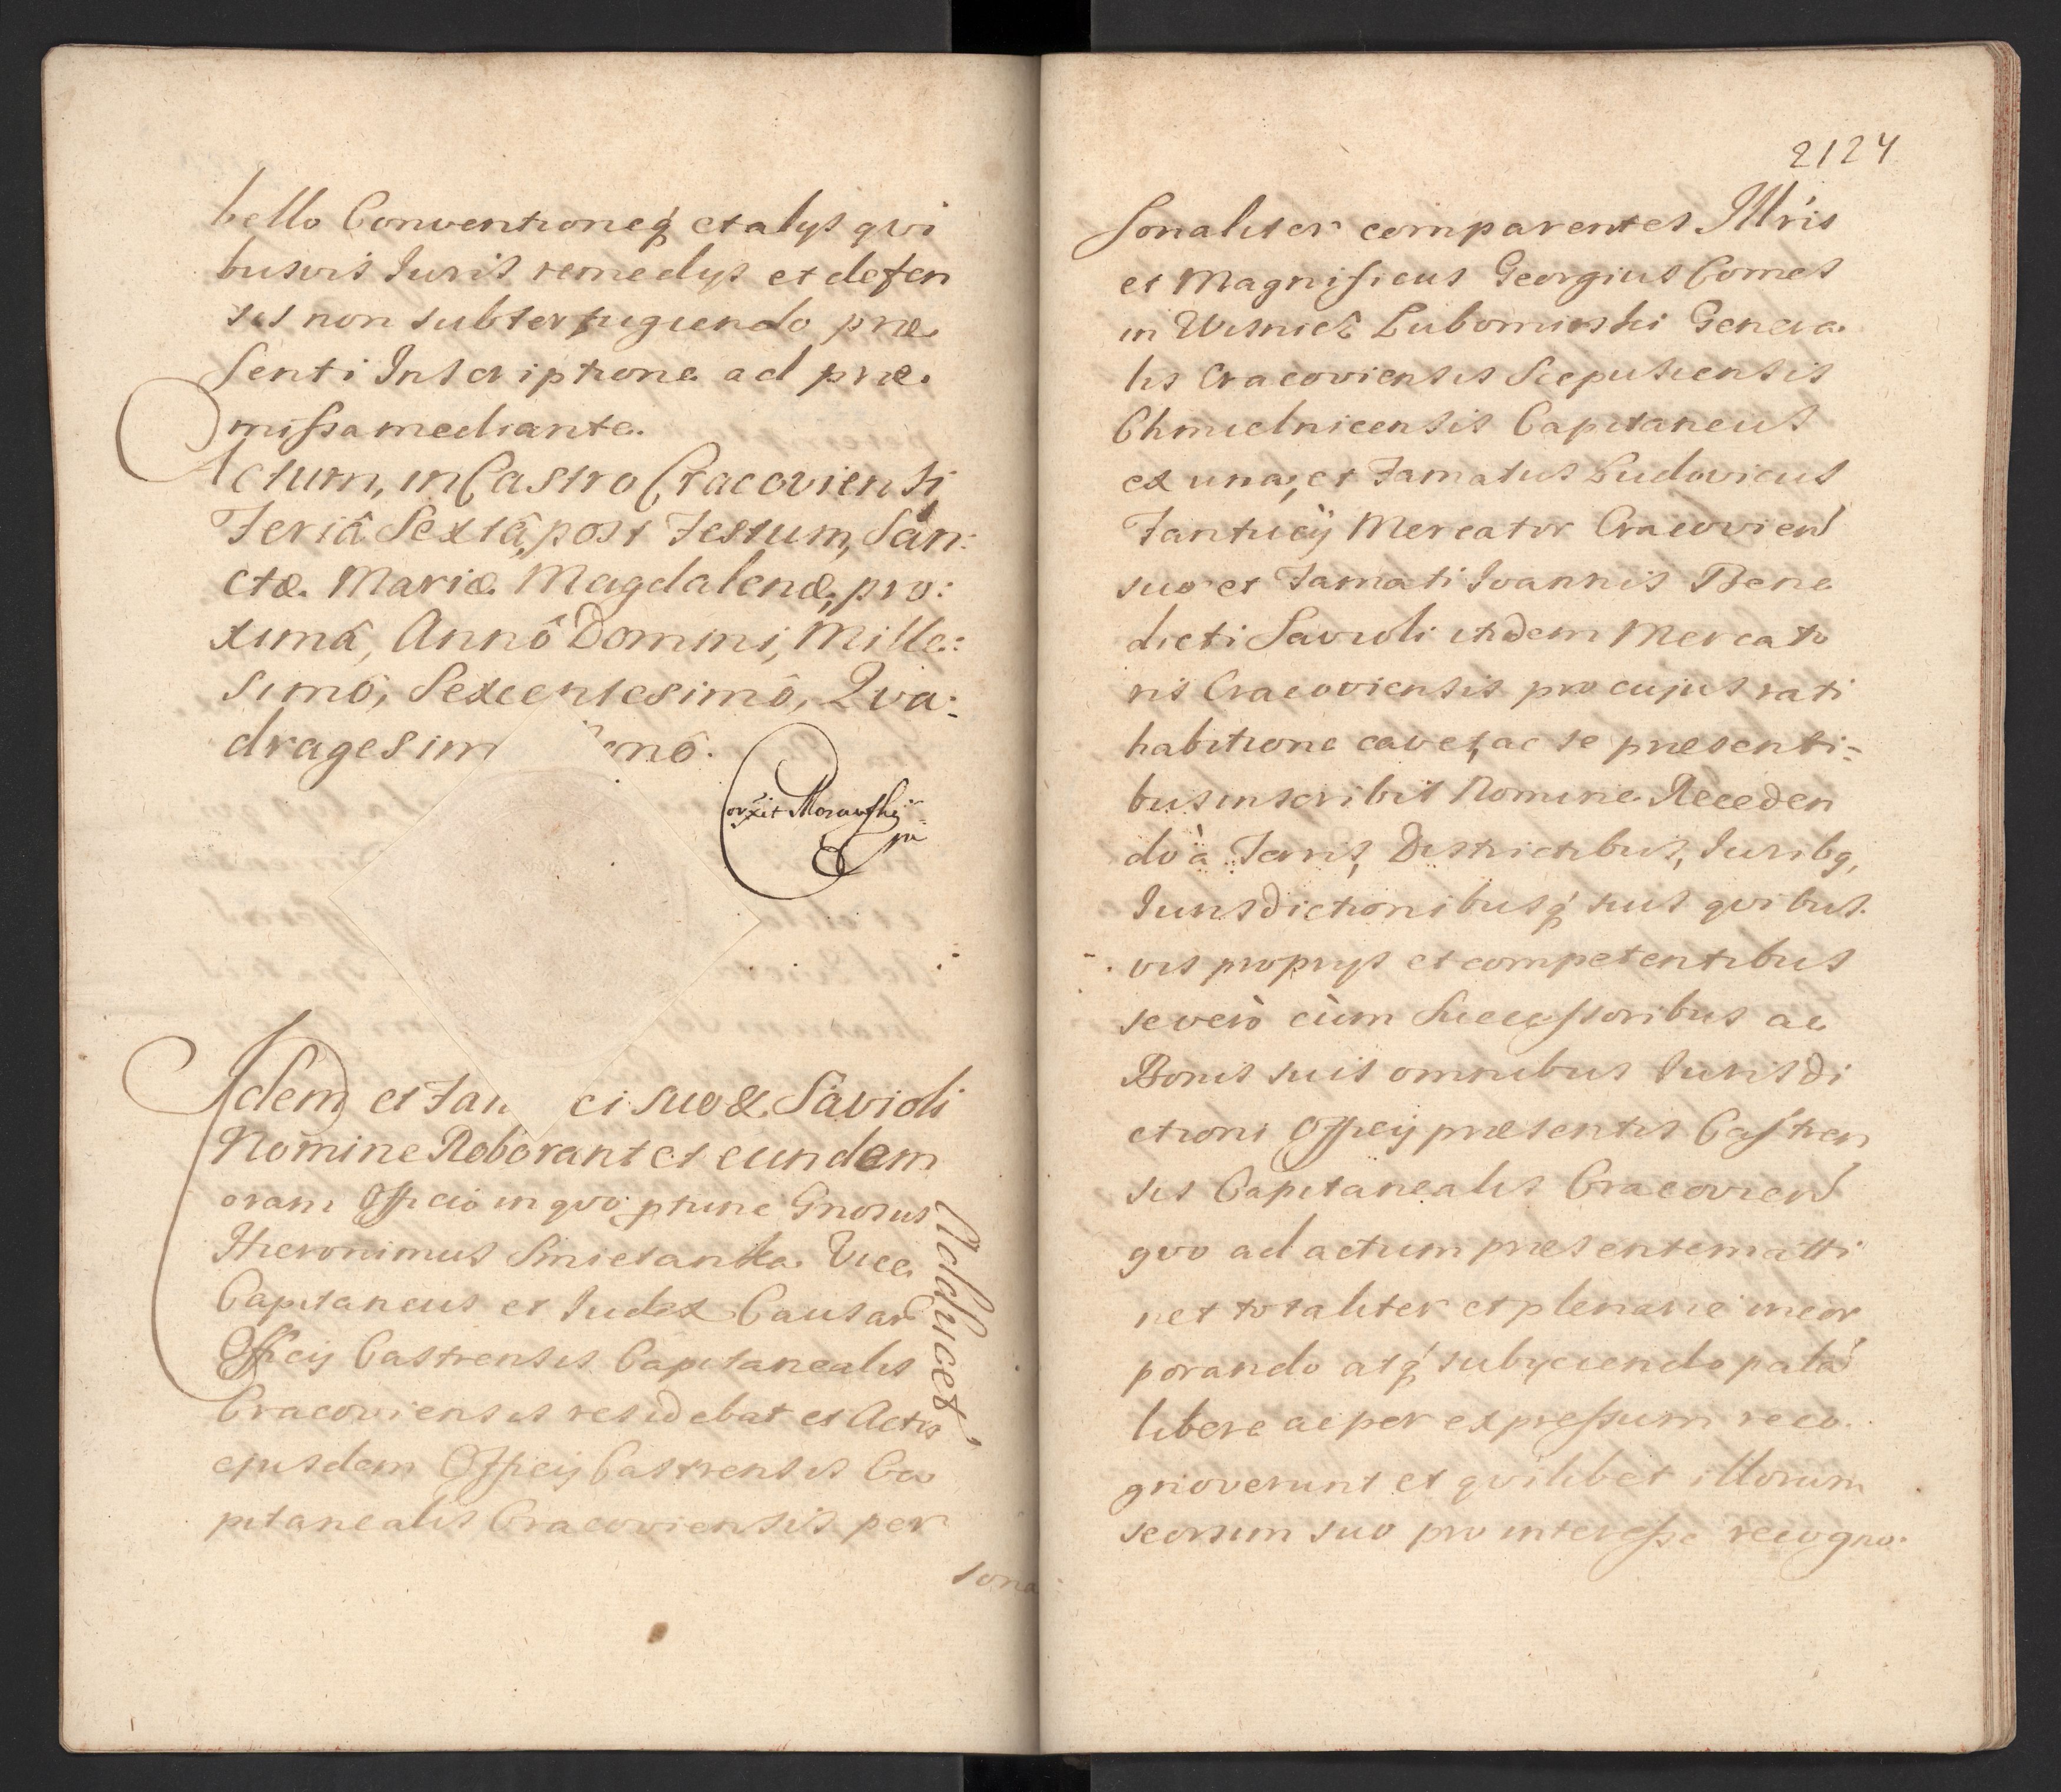 bello Conventioneq́ et alys qvi
busvis Juris remedys et defen
sis non subterfugiendo præ
senti Inscriptione ad præ
missa mediante.
Actum, in Castro Cracoviensi
Feriâ Sextâ, post Festum, San:
ctæ Mariæ Magdalenæ, pro:
ximâ, Annô Domini, Mille:
simô, Sexcentesimô, Qva:
dragesim nô.
Corrxit Morawski
Idem et Fan ci suo & Savioli
Nomine Roborant et eundem
oram Officio in qvo ptunc Gnosus
Hieronimus Smietanka Vice
Capitaneus et Iudex Causar
Officij Castrensis Capitanealis
Cracoviensis residebat et Actis
ejusdem Officij Castrensis Ca
pitanealis Cracoviensis per
sona
Adducet
2124
sonaliter comparentes Illris
et Magnificus Georgius Comes
in Wisnicz Lubomirski Genera
lis Cracoviensis Scepusiensis
Chmielnicensis Capitaneus
ex una, et Famatus Ludovicus
Fantucij Mercator Cracovien
suo et Famati Ioannis Bene
dicti Savioli itidem Mercato
ris Cracoviensis pro cujus rati
habitione cavet, ac se præsenti=
bus inscribit Nomine Receden
do à Terris, Districtibus, Iuribq,
Iurisdictionibusq́ suis qvibus
vis proprys et competentibus
se verò cùm Successoribus ac
Bonis suis omnibus Iurisdi
ctioni Officij præsentis Castren
sis Capitanealis Cracovien
qvo ad actum præsentem atti
net totaliter et plenarie incor
porando atq́ subyciendo palā
libere ac per expressum reco
gnoverunt et qvilibet illorum
seorsim suo pro interesse recogno